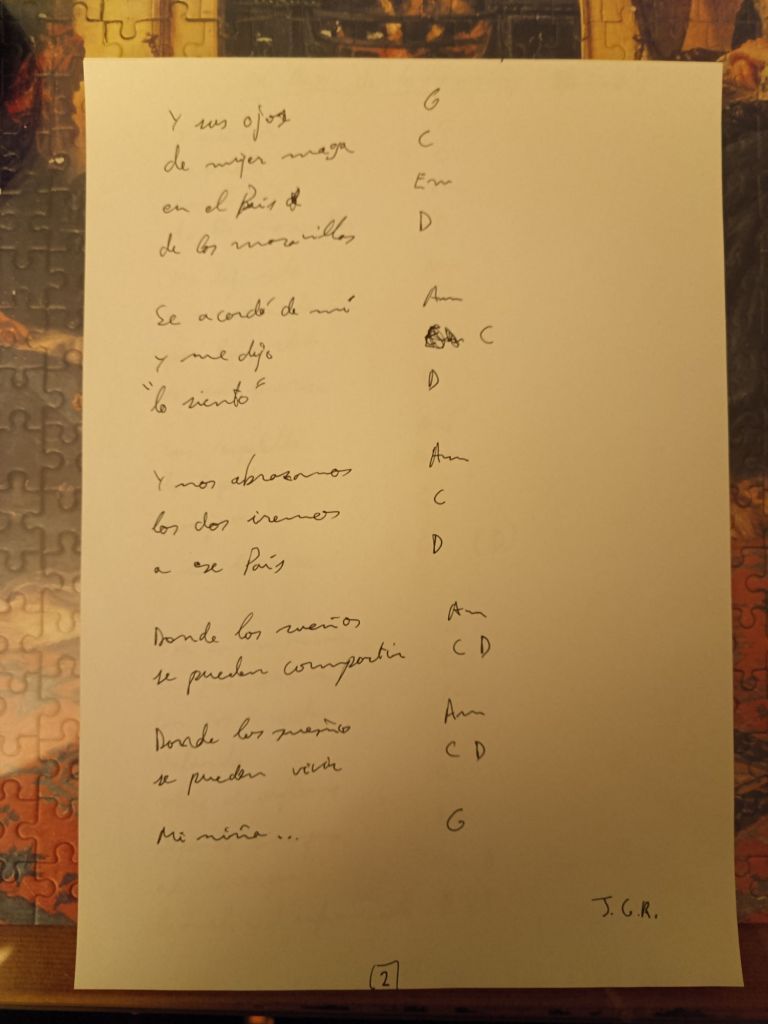 Y sus ojos G
de mujer maga C
en el País Em
de las maravillas D
Se acordó de mí Am
y me dijo C
"lo siento" D
Y nos abrazamos Am
los dos iremos C
a ese País D
Donde los sueños Am
se pueden compartir C D
Donde los sueños Am
se pueden vivir C D
Mi niña... G
J.G.R.
2